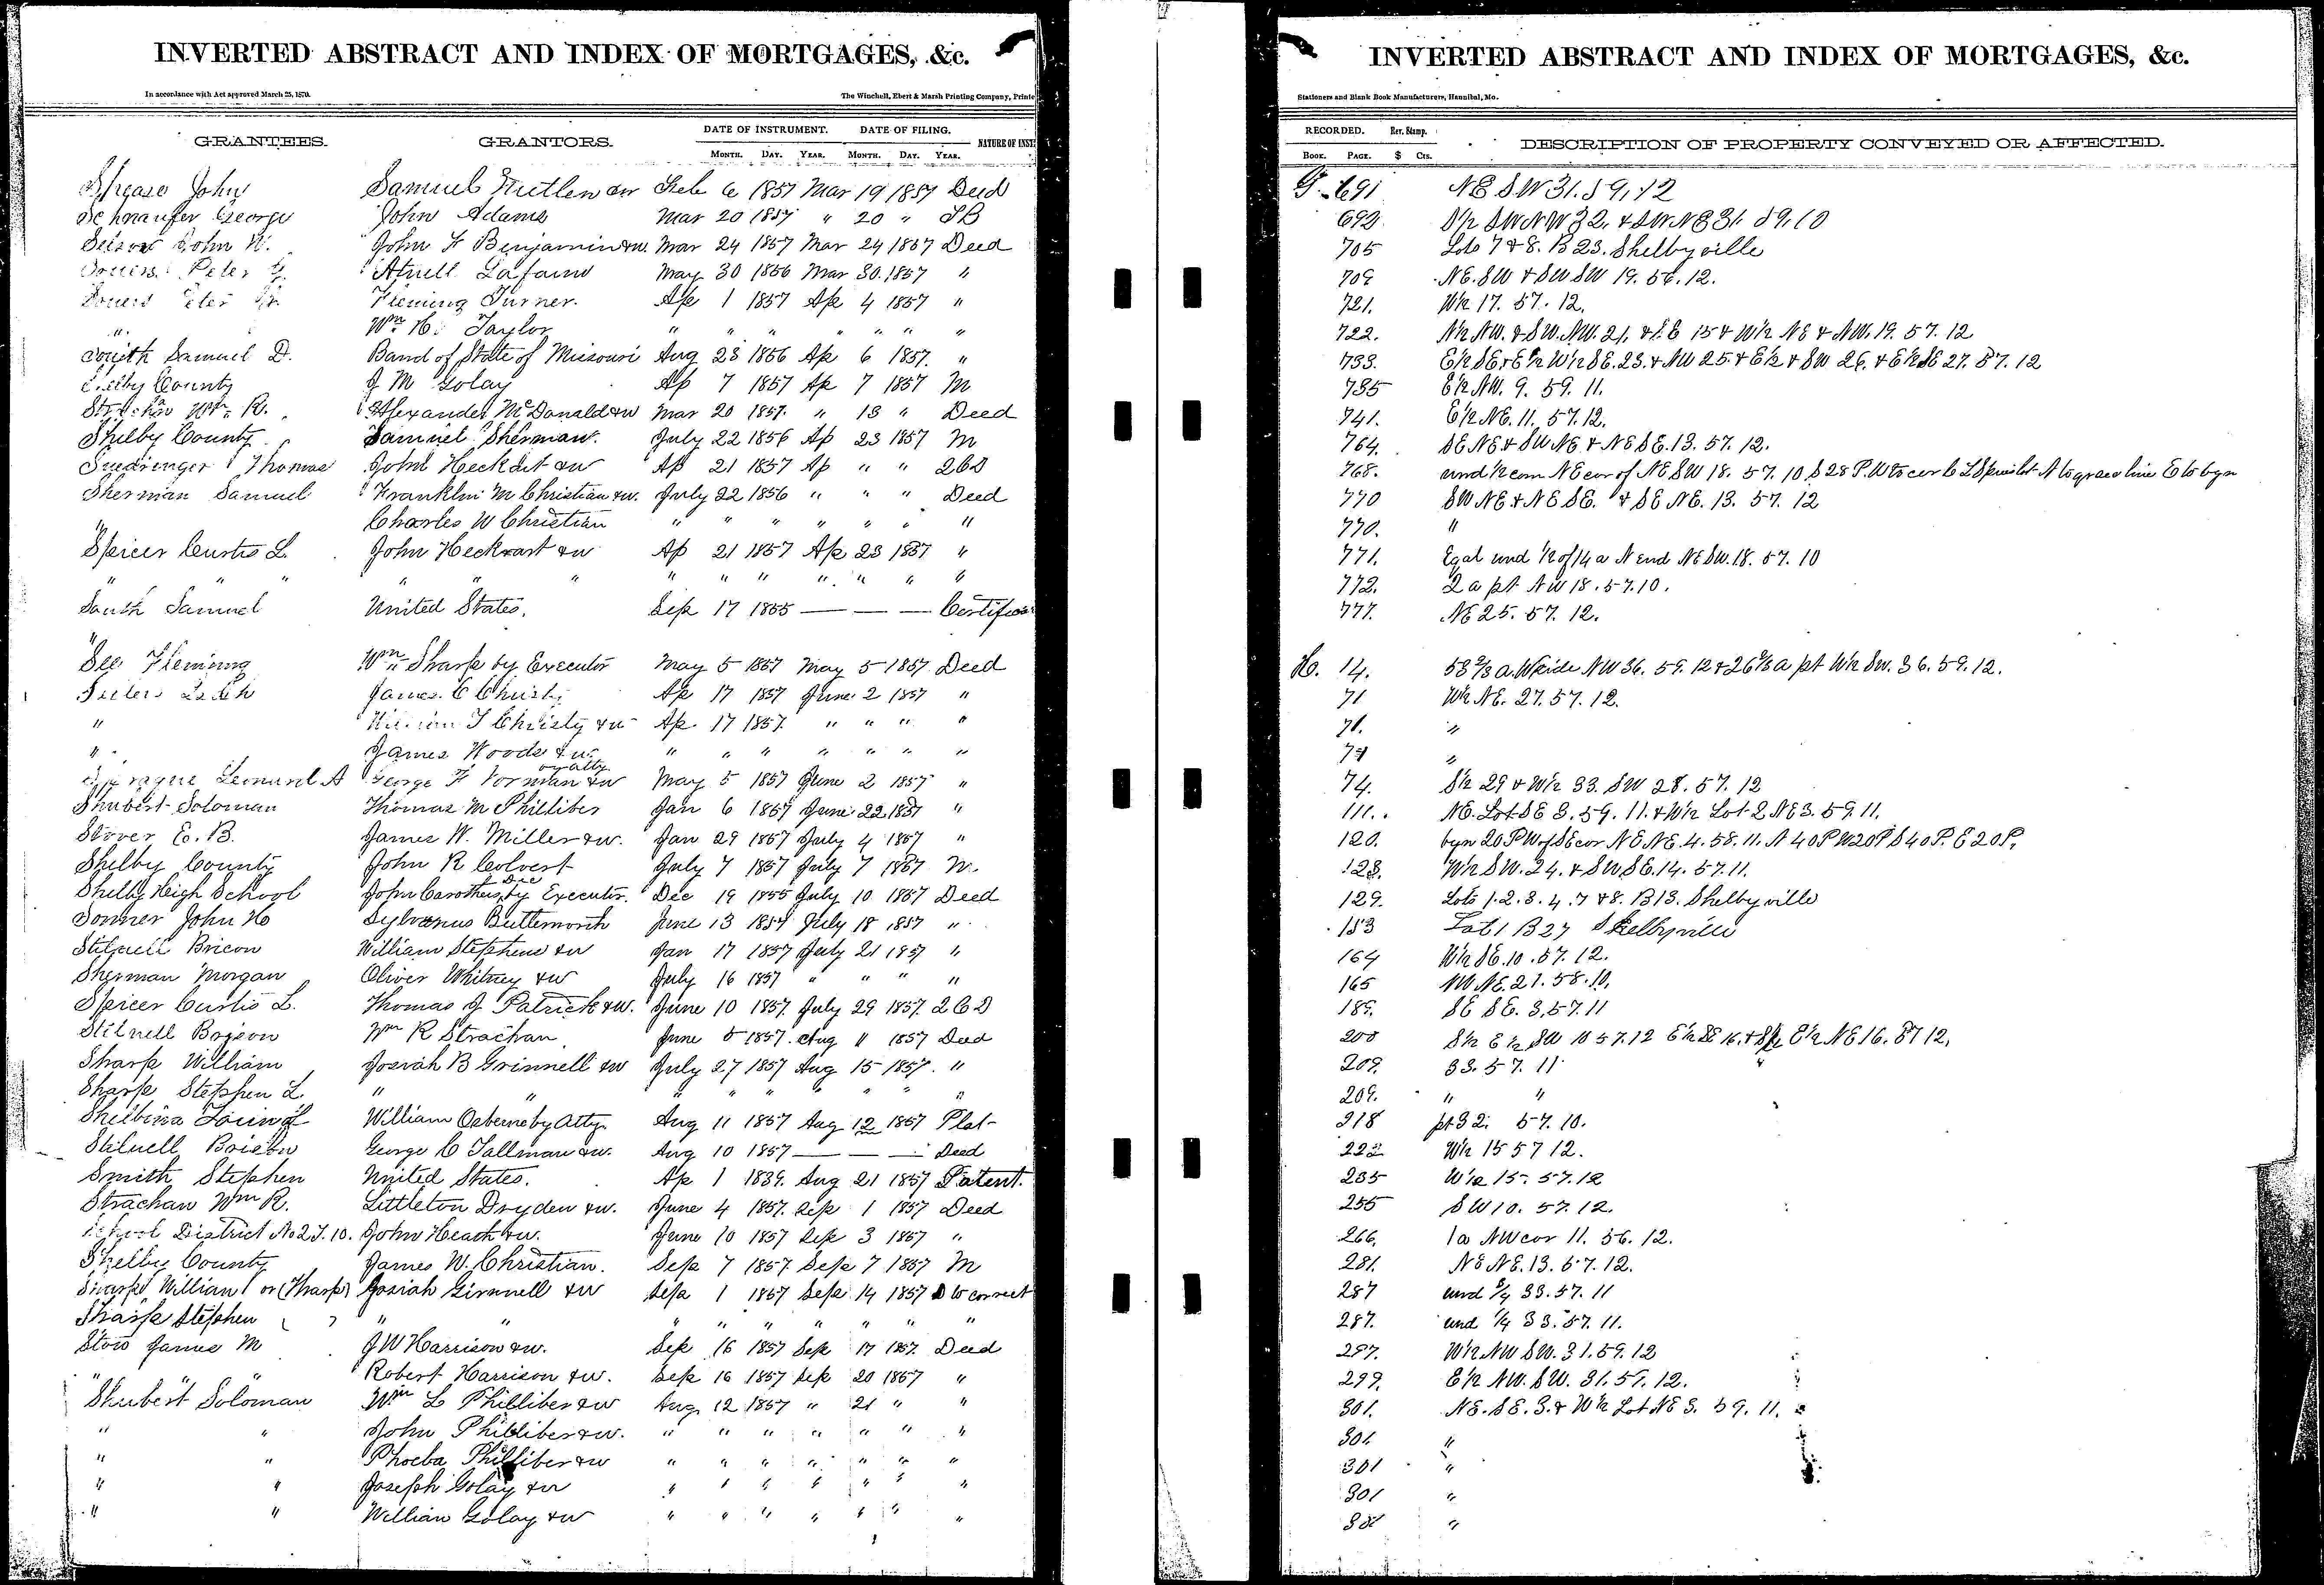 INVERTED ABSTRACT AND INDEX OF MORTGAGES, &c.
In accordance with Act approved March 25, 1870.
The Winchell, Ebert & Marsh Printing Company, Printe
GRANTEES. GRANTORS. DATE OF INSTRUMENT. DATE OF FILING. NATURE OF INST
MONTH. DAY. YEAR. MONTH. DAY. YEAR.
John Samuel Feb 6 1857 Mar 19 1857 Deed
Schnaufer George John Adams Mar 20 1857 " 20 "
John John F Benjamin &w. Mar 24 1857 Mar 24 1857 Deed
Peter May 30 1856 Mar 30. 1857 "
Fleming Turner. Ap 1 1857 Ap 4 1857 "
" Wm H. Taylor " " " " " " "
Samuel D. Band of State of Missouri Aug 28 1856 Ap 6 1857. "
Shelby County J M Golay Ap 7 1857 Ap 7 1857 M
Strachan Wm. R. Alexander McDonald &w Mar 20 1857. " 13 " Deed
Shelby County Samuel Sherman. July 22 1856 Ap 23 1857 M
Thomas John Heckart &w Ap 21 1857 Ap " "
Sherman Samuel Franklin M Christian &w. July 22 1856 " " " Deed
" Charles W Christian " " " " " " "
Spicer Curtis L. John Heckart &w Ap 21 1857 Ap 23 1857 "
" " " " " " " " " " " " "
Samuel United States. Sep 17 1855 — — —
"
See Fleming Wm Sharp by Executor May 5 1857 May 5 1857 Deed
James C Christy Ap 17 1857 June 2 1857 "
" Christy &w Ap. 17 1857. " " " "
" James Woods &w " " " " " " "
Sprague Leonard A George F &w by atty May 5 1857 June 2 1857 "
Shubert Soloman Thomas M Philliber Jan 6 1857 June 22 1857 "
Stover E. B. James W. Miller &w. Jan 29 1857 July 4 1857 "
Shelby County John R Colvert July 7 1857 July 7 1857 M.
Shelby High School John Carothers by Executor. Dec 19 1855 July 10 1857 Deed
John H Sylvanus Buttemorth June 13 1854 July 18 1857 "
Stilwell Bricon William Stephens &w Jan 17 1857 July 21 1857 "
Sherman Morgan Oliver Whitney &w July 16 1857 " " " "
Spicer Curtis L. Thomas J Patrick &w. June 10 1857. July 29 1857.
Stilwell Wm R Strachan June 5 1857. Aug 11 1857 Deed
Sharp William Josiah B Grinnell &w July 27 1857 Aug 15 1857. "
Sharp Stephen L. " " " " " " " " "
Shelbina William Osborne by Atty. Aug 11 1857 Aug 12 1857 Plat
Stilwell George C Tallman &w. Aug 10 1857 — — — Deed
Smith Stephen United States. Ap 1 1839. Aug 21 1857 Patent.
Strachan Wm R. Littleton Dryden &w. June 4 1857. Sep 1 1857 Deed
School District No 2 T. 10. John Heack &w. June 10 1857 Sep 3 1857 "
Shelby County James W. Christian. Sep 7 1857 Sep 7 1857 M
Sharp William or (Tharp) Josiah Grinnell &w Sep 1 1857 Sep 14 1857 D to correct
Sharp Stephen " " " " " " " " "
Stow James M J W Harrison &w. Sep 16 1857 Sep 17 1857. Deed
" " Robert Harrison &w. Sep 16 1857 Sep 20 1857 "
Shubert Soloman Wm L Philliber &w Aug 12 1857 " 21 " "
" " John Philliber &w. " " " " " " "
" " Phoeba Philliber &w " " " " " " "
" " Joseph Golay &w " " " " " " "
" " William Golay &w " " " " " " "
INVERTED ABSTRACT AND INDEX OF MORTGAGES, &c.
Stationers and Blank Book Manufacturers, Hannibal, Mo.
RECORDED. Rev. Stamp. DESCRIPTION OF PROPERTY CONVEYED OR AFFECTED.
BOOK. PAGE. $ Cts.
G. 691 NE SW 31. 59. 12
692 S½ SW NW 32. & SW NE 31. 59. 10
705 Lots 7 & 8. B 23. Shelbyville
709 NE. SW & SW SW 19. 56. 12.
721. W½ 17. 57. 12.
722. N½ NW. & SW. NW. 21, & SE 15 & W½ NE & NW. 19. 57. 12
733. E½ SE & E½ W½ SE. 23. & NW 25. & E½ & SW 26. & E½ SE 27. 57. 12
735 E½ NW. 9. 59. 11.
741. E½ NE. 11. 57. 12.
764. SE NE & SW NE & NE SE. 13. 57. 12.
768. und ½ com NE cor of NE SW 18. 57. 10 S 28 P. W to cor C L Spicer lot N to line E to bgn
770 SW NE & NE SE. & SE NE. 13. 57. 12
770. "
771. Egal und ½ of 14 a N end NE SW. 18. 57. 10
772. 2 a pt NW 18. 57. 10.
777. NE 25. 57. 12.
H. 14. 53⅔ a. W side NW 36. 59. 12 & 26⅔ a pt W½ SW. 36. 59. 12.
71 W½ NE. 27. 57. 12.
71. "
71 "
74. S½ 29 & W½ 33. SW 28. 57. 12
111. NE. Lot SE 3. 59. 11. & W½ Lot 2 NE 3. 59. 11.
120. bgn 20 P W of SE cor NE NE. 4. 58. 11. N 40 P W 20 P S 40 P. E 20 P.
128. W½ SW. 24. & SW SE. 14. 57. 11.
129. Lots 1. 2. 3. 4. 7 & 8. B 13. Shelbyville
153 Lot 1 B 27 Shelbyville
164 W½ SE. 10. 57. 12.
165 NW NE. 21. 58. 10.
189. SE SE. 3. 57. 11
200 S½ E½ SW 10 57. 12 E½ SE 16. & E½ NE 16. 57 12.
209. 33. 57. 11
209. " "
218 pt 32. 57. 10.
222 W½ 15 57 12.
235 W½ 15. 57. 12
255 SW 10. 57. 12.
266. 1 a NW cor 11. 56. 12.
281. NE NE. 13. 57. 12.
287 und ¾ 33. 57. 11
287. und ¼ 33. 57. 11.
297. W½ NW SW. 31. 59. 12
299. E½ NW. SW. 31. 59. 12.
301. NE. SE. 3. & W½ Lot NE 3. 59. 11.
301. "
301 "
301 "
301 "